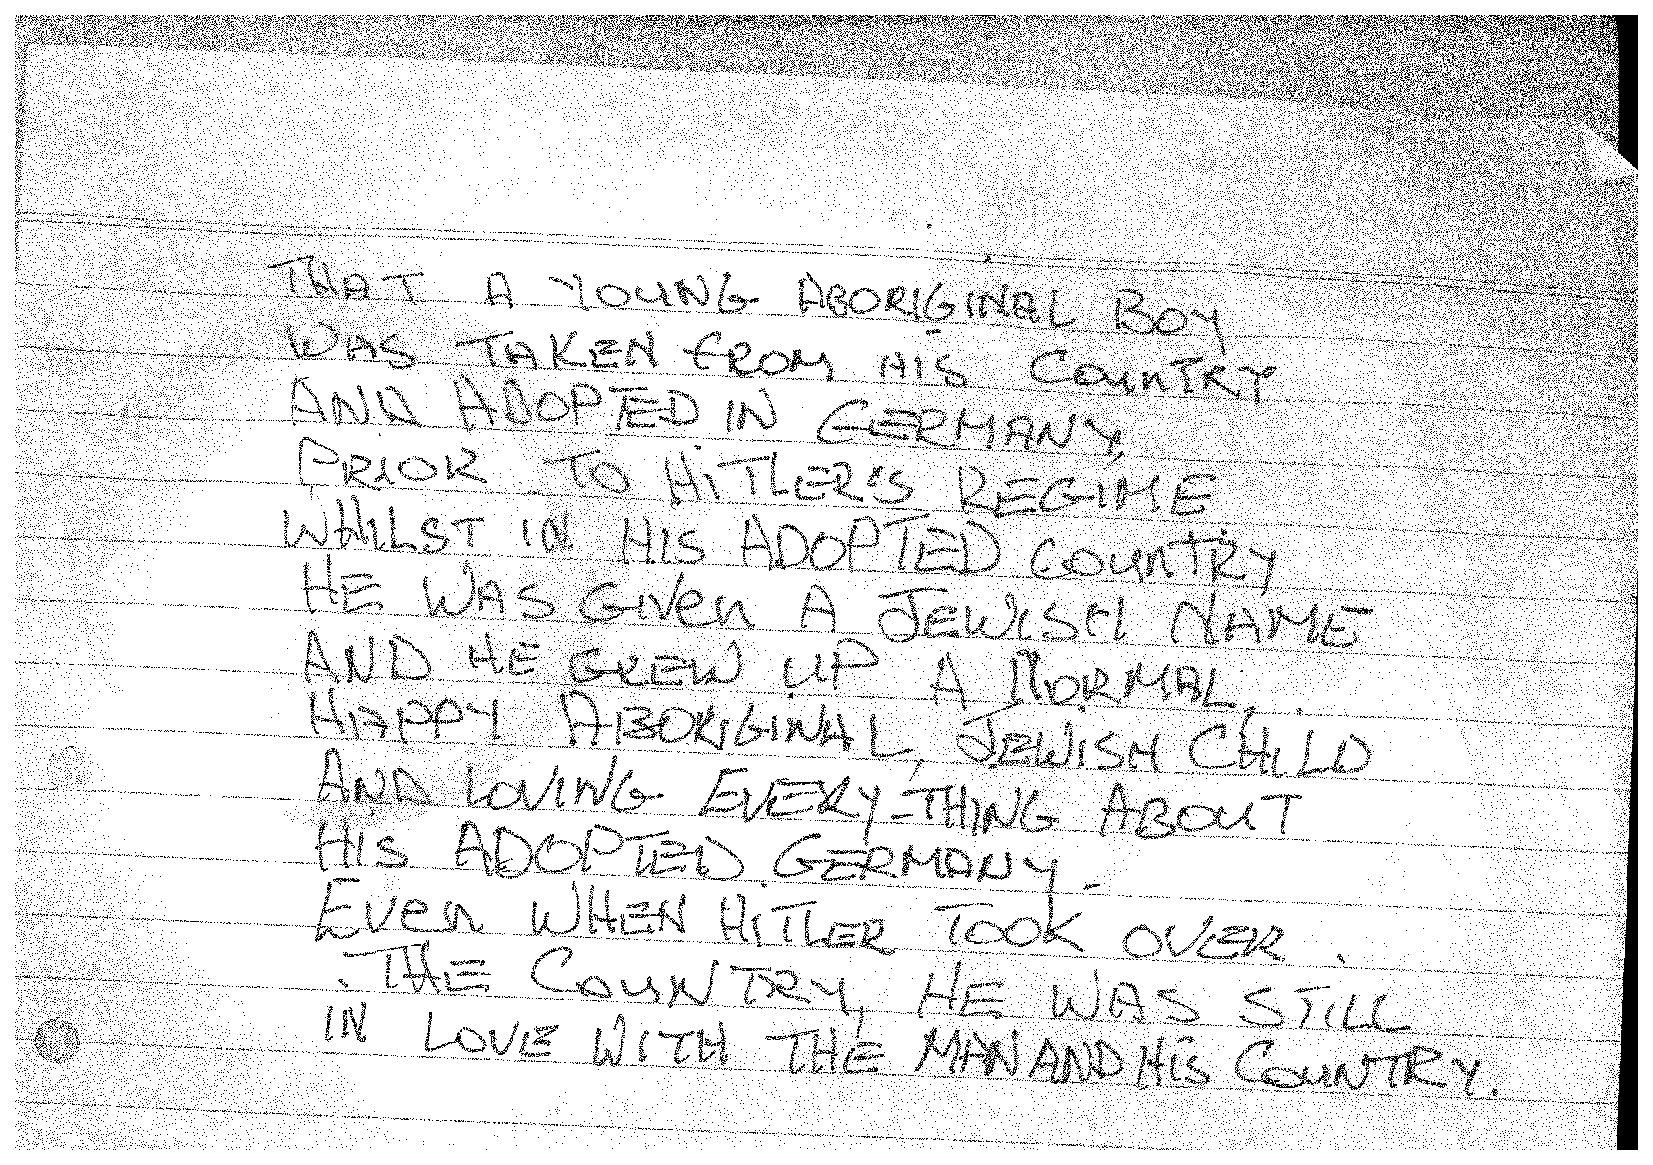 THAT A YOUNG ABORIGINAL BOY
WAS TAKEN FROM HIS COUNTRY
AND ADOPTED IN GERMANY,
PRIOR TO HITLER'S REGIME.
WHILST IN HIS ADOPTED COUNTRY
HE WAS GIVEN A JEWISH NAME
AND HE GREW UP A NORMAL,
HAPPY ABORIGINAL, JEWISH CHILD
AND LOVING EVERY-THING ABOUT
HIS ADOPTED GERMANY.
EVEN WHEN HITLER TOOK OVER
THE COUNTRY, HE WAS STILL
IN LOVE WITH THE MAN AND HIS COUNTRY.